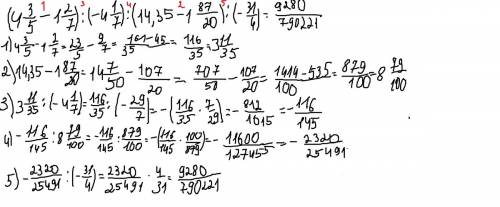 1 3 4 2 5
(4 3/5 - 1 2/7):(-4 1/7):(14,35-1 87/20):(-31/4)=9280/790221
1) 4 3/5 - 1 2/7 = 23/5 - 9/7 = 161-45/35 = 116/35 = 3 11/35
2) 14,35-1 87/20 = 14 7/50 - 107/20 = 707/50 - 107/20 = 1414-535/100 = 879/100 = 8 79/100
3) 3 11/35 : (-4 1/7) = 116/35 : (-29/7) = -(116/35 · 7/29) = -812/1015 = -116/145
4) -116/145 : 8 79/100 = -116/145 : 879/100 = -(116/145 · 100/879) = -11600/127455 = -2320/25491
5) -2320/25491 : (-31/4) = 2320/25491 · 4/31 = 9280/790221